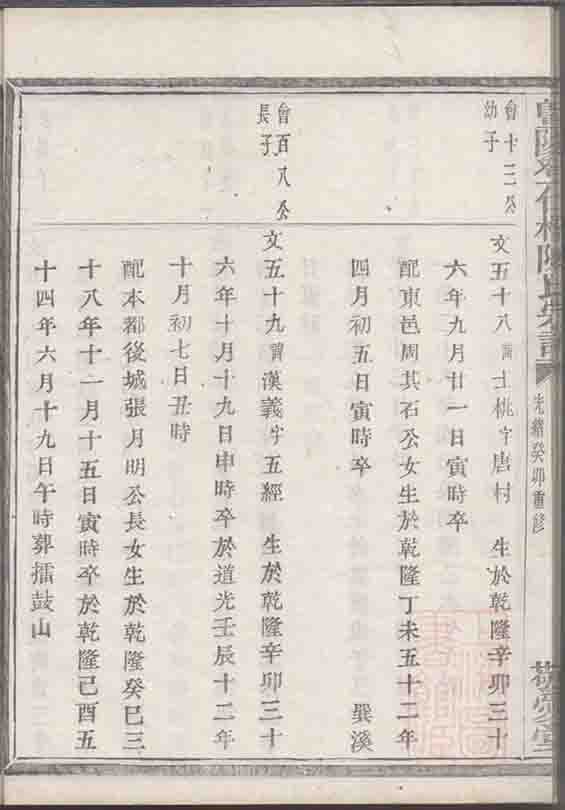 會十三公
幼子
文五十八 諱士桃字唐村 生於乾隆辛卯三十
六年九月廿一日寅時卒
配東邑周其石公女生於乾隆丁未五十二年
四月初五日寅時卒 巽溪
會百八公
長子
文五十九諱漢義字五經 生於乾隆辛卯三十
六年十月十九日申時卒於道光壬辰十二年
十月初七日丑時
配本都後城張月明公長女生於乾隆癸巳三
十八年十一月十五日寅時卒於乾隆己酉五
十四年六月十九日午時葬擂鼓山
光緒癸卯重修